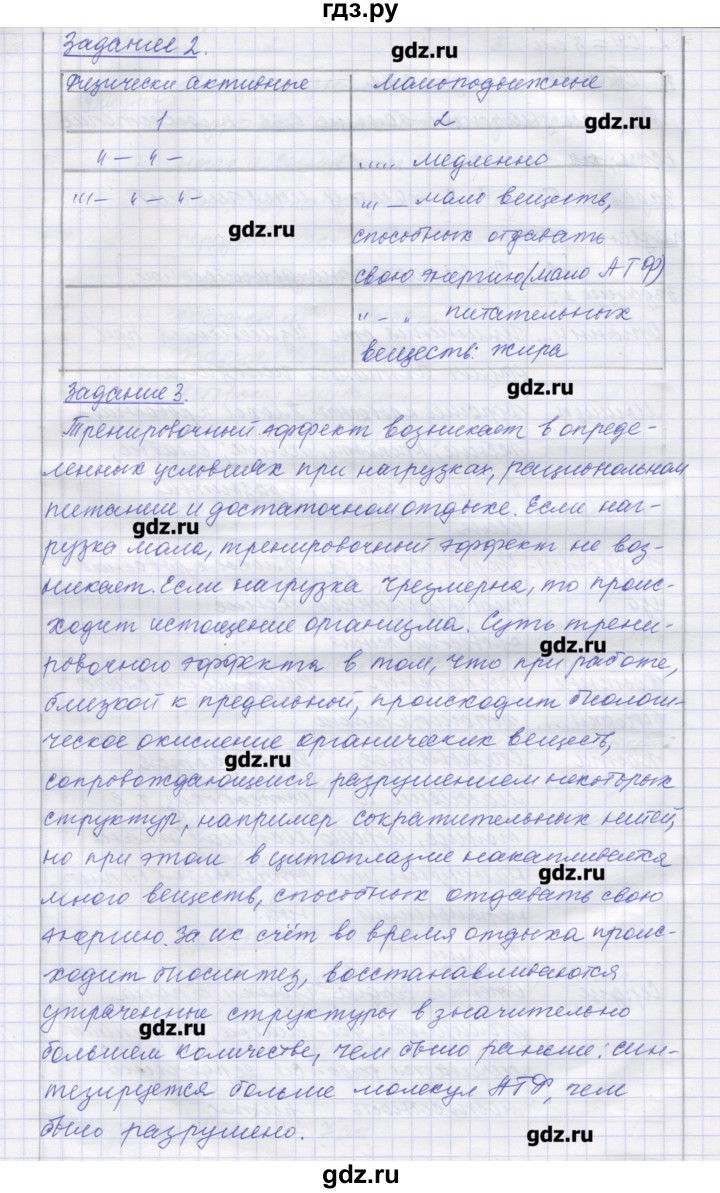 гдз.ру
Задание 2.
gdz.ru
Физически активные Малоподвижные
1 2
gdz.ru
–"– –"– ,,,,, медленно
'''– –"– –"– ,,, – мало веществ,
gdz.ru
способных отдавать
свою энергию (мало АТФ)
" – „ питательных
веществ: жира
Задание 3.
gdz.ru
Тренировочный эффект возникает в опреде-
ленных условиях при нагрузках, рациональном
питании и достаточном отдыхе. Если наг-
gdz.ru
рузка мала, тренировочный эффект не воз-
никает. Если нагрузка чрезмерна, то проис-
ходит истощение организма. Суть трени-
gdz.ru
ровочного эффекта в том, что при работе,
близкой к предельной, происходит биологи-
ческое окисление органических веществ,
gdz.ru
сопровождающееся разрушением некоторых
структур, например сократительных нитей,
но при этом в цитоплазме накапливается
gdz.ru
много веществ, способных отдавать свою
энергию. За их счёт во время отдыха проис-
ходит биосинтез, восстанавливаются
утраченные структуры в значительно
gdz.ru
большем количестве, чем было раньше: син-
тезируется больше молекул АТФ, чем
было разрушено.
gdz.ru
gdz.ru